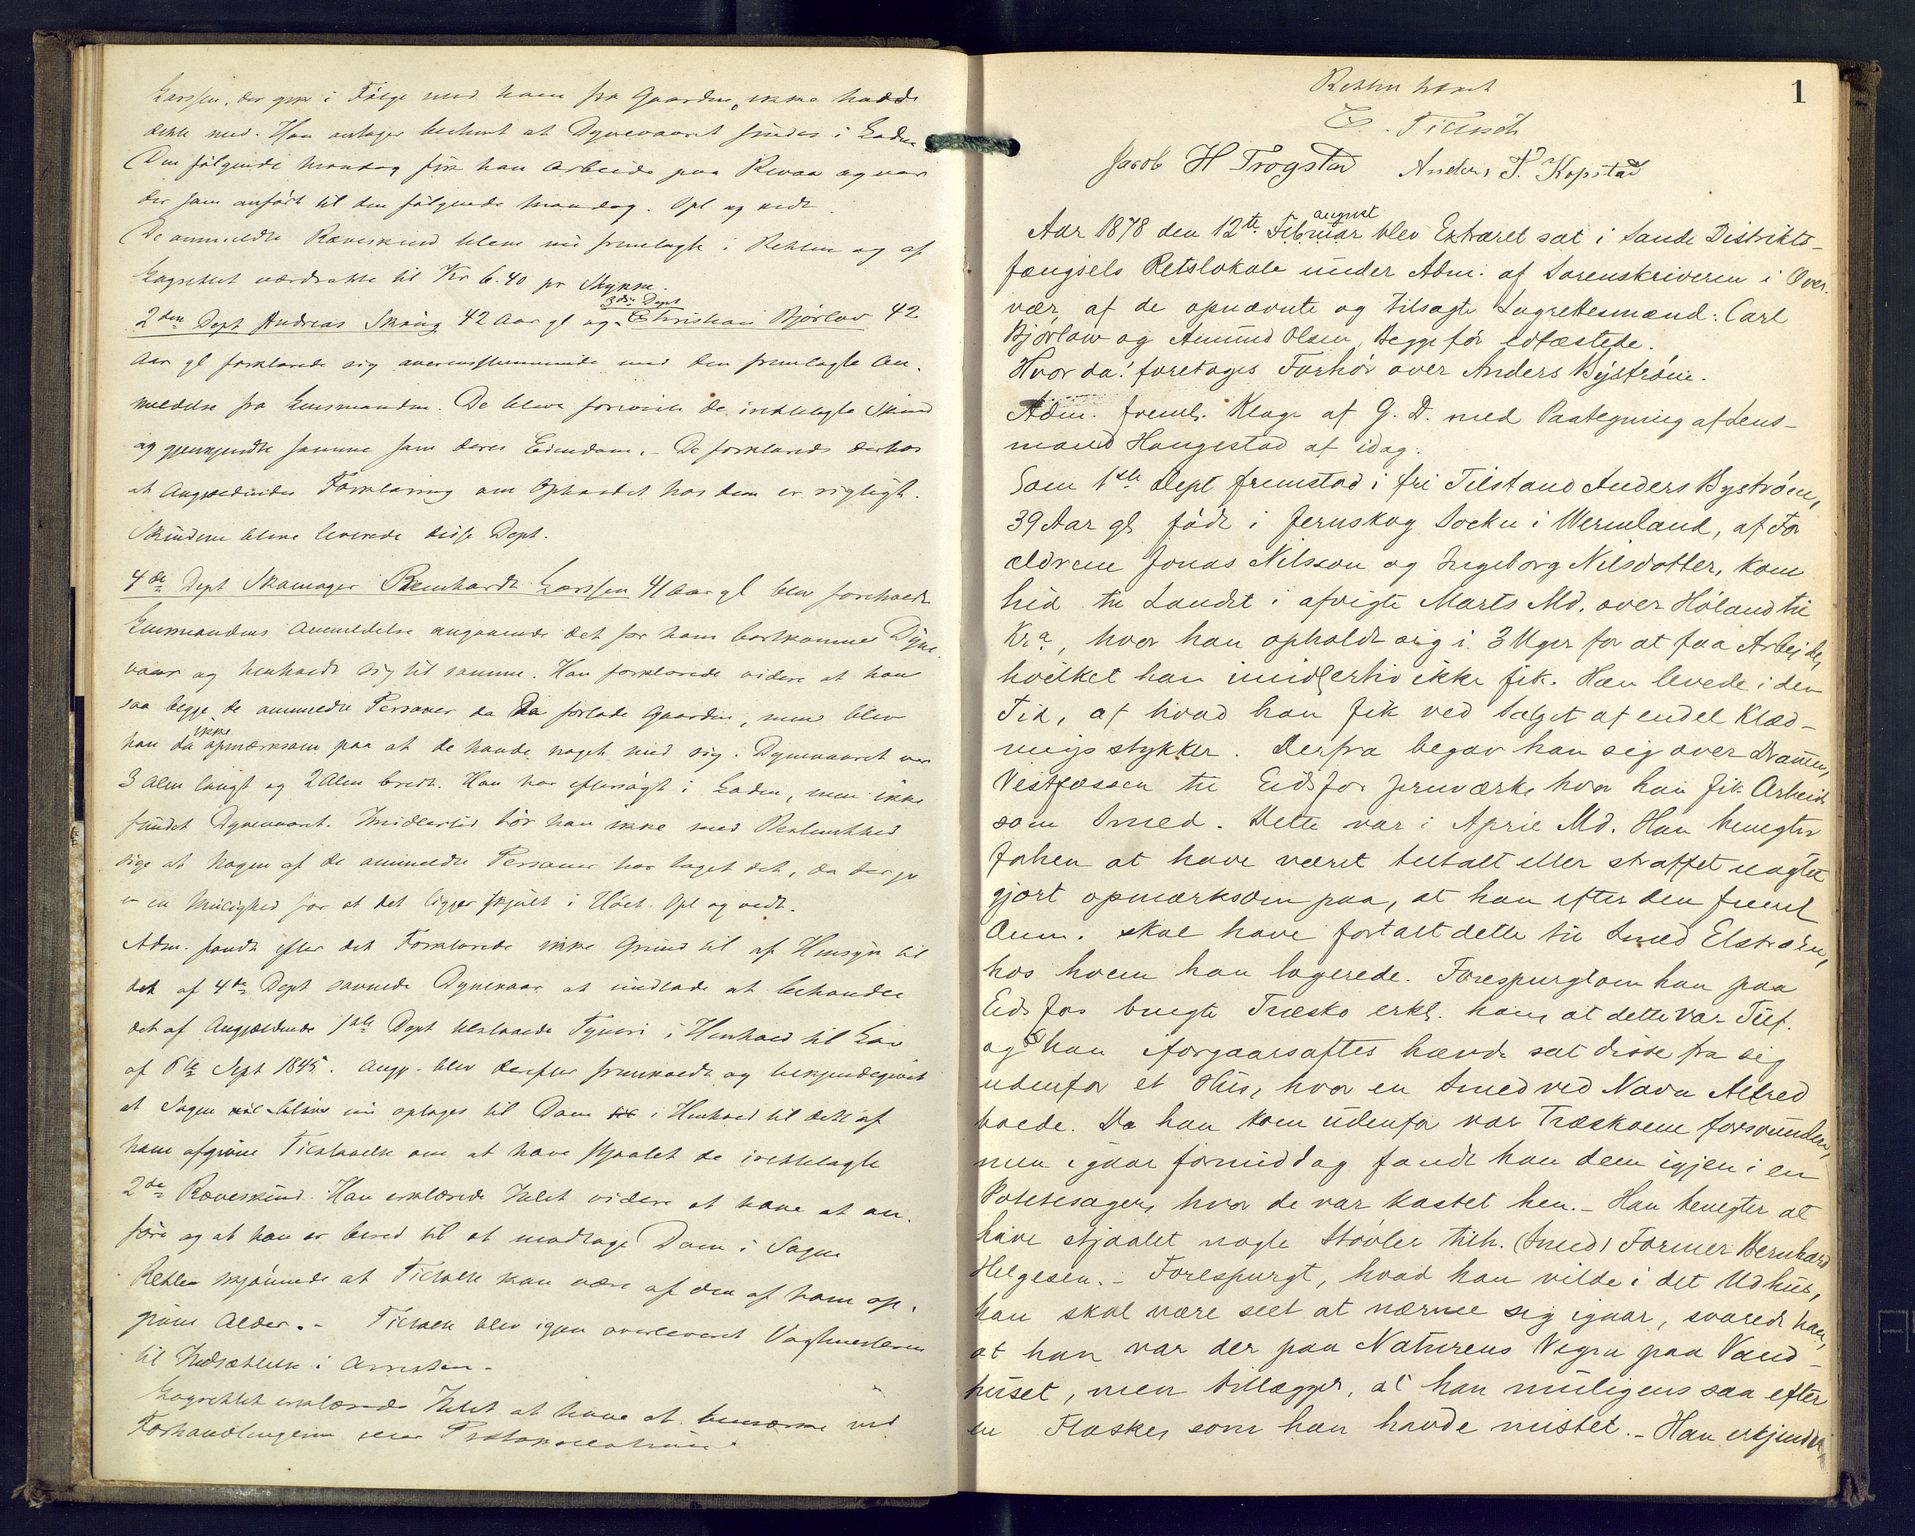 Larssen, der gik i Følge med ham fra Gaarden, ikke hadde
dette med. Han antager bestemt at Dynevaaret findes i Laden
Den følgende Mandag fik han Arbeide paa Revaa og var
der som anført til den følgende Mandag. Opl og vedt.
De anmeldte Ræveskind bleve nu fremlagte i Retten og af
Lagrettet værdsatte til Kr 6.40 pr Stykke.
3die Dept
2den Dept Andreas Skaug 42 Aar gl og Christian Bjørlow 42
Aar gl forklarede sig overensstemmende med den fremlagte An-
meldelse fra Lensmanden. De bleve foreviste de irettelagte Skind
og gjenkjendte samme som deres Eiendom. - De forklarede derhos
at Angjeldendes Forklaring om Opholdet hos dem er rigtigt.
Skindene bleve leverede disse Dept.
4de Dept Skomager Reinhardt Larssen 41 Aar gl blev foreholdt
Lensmandens Anmeldelse angaaende det for ham bortkomne Dyne-
vaar og henholdt sig til samme. Han forklarede videre at han
saa begge de anmeldte Personer da de forlode Gaarden, men blev
ikke
han da opmærksom paa at de havde noget med sig. Dynevaaret var
3 Alen langt og 2 Alen bredt. Han har eftersøgt i Laden, men ikke
fundet Dynevaaret. Imidlertid tør han ikke med Bestemthed
sige at nogen af de anmeldte Personer har taget det, da der jo
er en Mulighed for at det ligger skjult i Høet. Opl og vedt.
Adm. fandt efter det Forklarede ikke Grund til af Hensyn til
det af 4de Dept savnede Dynevaar at undlade at behandle
det af Angjældende 1ste Dept tilstaaede Tyveri i Henhold til Lov
af 6te Sept 1845. Angj. blev derefter fremkaldt og bekjendtgivet
at Sagen blive nu optages til Dom i Henhold til dette af
ham afgivne Tilstaaelse om at have stjaalet de irettelagte
2de Ræveskind. Han erklærede Intet videre at have at an-
føre og at han er bered til at modtage Dom i Sagen
Retten skjønnede at Tiltalte kan være af den af ham op-
givne Alder. - Tiltalte blev igjen overleveret Vagtmesteren
til Indsættelse i Arresten. -
Lagrettet erklærede Intet at have at bemærke ved
Forhandlingerne eller Protokollationen
1
Retten hævet
E. Tiensch
Jacob H Trogstad Anders P. Kopstad
august
Aar 1878 den 12te Februar blev Extraret sat i Sande Distrikts-
fængsels Retslokale under Adm. af Sorenskriveren i Over-
vær af de opnævnte og tilsagte Lagrettesmænd: Carl
Bjørlow og Amund Olsen, Begge før edfæstede.
Hvor da! foretages Forhør over Anders Bystrøm.
Adm. freml. Klage af G. D. med Paategning af Lens-
mand Hougestad af idag.
Som 1ste Dept fremstod i fri Tilstand Anders Bystrøm,
39 Aar gl født i Jernskog Socken i Wermland, af For
ældrene Jonas Nilsson og Ingeborg Nilsdotter, kom
hid til Landet i afvigte Marts Md. over Høland til
Kra, hvor han opholdt sig i 3 Uger for at faa Arbeide,
hvilket han imidlertid ikke fik. Han levede i den
Tid, af hvad han fik ved Salget af endel Klæd-
ningsstykker. Derfra begav han sig over Drammen,
Vestfossen til Eidsfos Jernværk hvor han fik Arbeide
som Smed. Dette var i April Md. Han benegter
forhen at have været tiltalt eller straffet uagtet
gjort opmærksom paa, at han efter den freml
Anm. skal have fortalt dette til Smed Elstrøm,
hos hvem han logerede. Forespurgt om han paa
Eidsfos brugte Træsko erkl. han, at dette var Tilf.
og han forgaarsaftes havde sat disse fra sig
udenfor et Hus, hvor en Smed ved Navn Alfred
boede. Da han kom udenfor var Træskoene forsvunden,
men igaar formiddag fandt han dem igjen i en
Potetesager, hvor de var kastet hen. - Han benegter at
have stjaalet nogle Støvler tilh. (Smed) Former Bernhard
Helgesen. - Forespurgt, hvad han vilde i det Udhus,
han skal være seet at nærme sig igaar, svarede han,
at han var der paa Naturens Vegne paa Vand-
huset, men tillægger, at han muligens saa efter
en Flaske, som han havde mistet. - Han erkjender